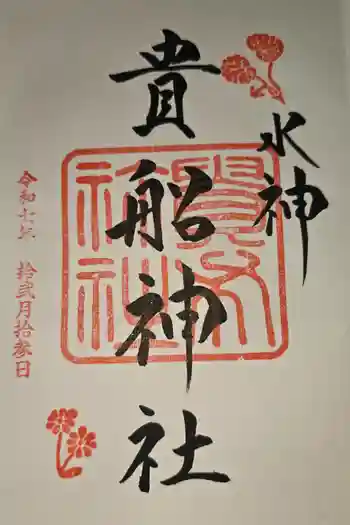 水神
貴船神社
令和七年 拾弐月拾参日